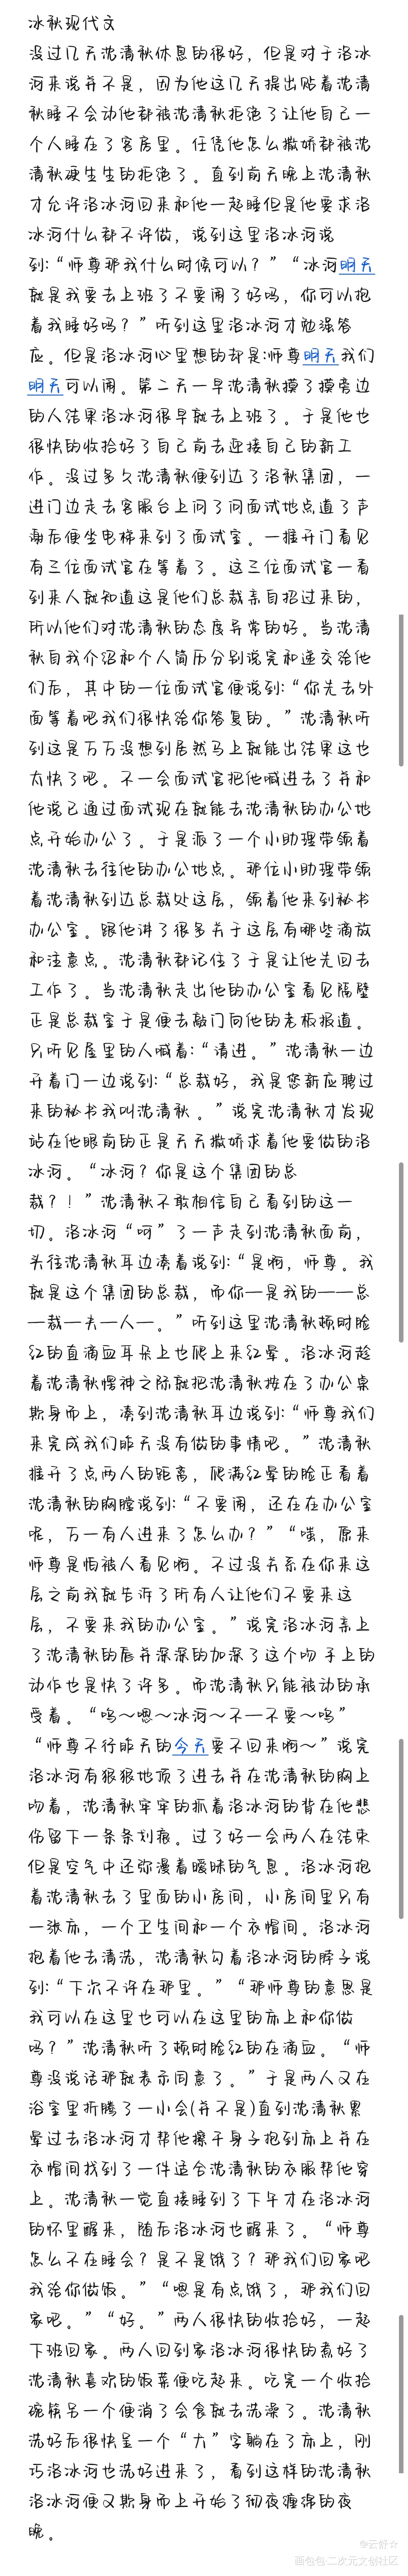 冰秋现代文
没过几天沈清秋休息的很好，但是对于洛冰
河来说并不是，因为他这几天提出贴着沈清
秋睡不会动他都被沈清秋拒绝了让他自己一
个人睡在了客房里。任凭他怎么撒娇都被沈
清秋硬生生的拒绝了。直到前天晚上沈清秋
才允许洛冰河回来和他一起睡但是他要求洛
冰河什么都不许做，说到这里洛冰河说
到:“师尊那我什么时候可以？”“冰河明天
就是我要去上班了不要闹了好吗，你可以抱
着我睡好吗？”听到这里洛冰河才勉强答
应。但是洛冰河心里想的却是:师尊明天我们
明天可以闹。第二天一早沈清秋摸了摸旁边
的人结果洛冰河很早就去上班了。于是他也
很快的收拾好了自己前去迎接自己的新工
作。没过多久沈清秋便到达了洛秋集团，一
进门边走去客服台上问了问面试地点道了声
谢后便坐电梯来到了面试室。一推开门看见
有三位面试官在等着了。这三位面试官一看
到来人就知道这是他们总裁亲自招过来的，
所以他们对沈清秋的态度异常的好。当沈清
秋自我介绍和个人简历分别说完和递交给他
们后，其中的一位面试官便说到:“你先去外
面等着吧我们很快给你答复的。”沈清秋听
到这是万万没想到居然马上就能出结果这也
太快了吧。不一会面试官把他喊进去了并和
他说已通过面试现在就能去沈清秋的办公地
点开始办公了。于是派了一个小助理带领着
沈清秋去往他的办公地点。那位小助理带领
着沈清秋到边总裁处这层，领着他来到秘书
办公室。跟他讲了很多关于这层有哪些滴放
和注意点。沈清秋都记住了于是让他先回去
工作了。当沈清秋走出他的办公室看见隔壁
正是总裁室于是便去敲门向他的老板报道。
只听见屋里的人喊着:“请进。”沈清秋一边
开着门一边说到:“总裁好，我是您新应聘过
来的秘书我叫沈清秋。”说完沈清秋才发现
站在他眼前的正是天天撒娇求着他要做的洛
冰河。“冰河？你是这个集团的总
裁？！”沈清秋不敢相信自己看到的这一
切。洛冰河“呵”了一声走到沈清秋面前，
头往沈清秋耳边凑着说到:“是啊，师尊。我
就是这个集团的总裁，而你一是我的一一总
一裁一夫一人一。”听到这里沈清秋顿时脸
红的直滴血耳朵上也爬上来红晕。洛冰河趁
着沈清秋愣神之际就把沈清秋按在了办公桌
欺身而上，凑到沈清秋耳边说到:“师尊我们
来完成我们昨天没有做的事情吧。”沈清秋
推开了点两人的距离，爬满红晕的脸正看着
沈清秋的胸膛说到:“不要闹，还在在办公室
呢，万一有人进来了怎么办？”“嗤，原来
师尊是怕被人看见啊。不过没关系在你来这
层之前我就告诉了所有人让他们不要来这
层，不要来我的办公室。”说完洛冰河亲上
了沈清秋的唇并深深的加深了这个吻手上的
动作也是快了许多。而沈清秋只能被动的承
受着。“呜～嗯～冰河～不一不要～呜”
“师尊不行昨天的今天要不回来啊～”说完
洛冰河有狠狠地顶了进去并在沈清秋的胸上
吻着，沈清秋牢牢的抓着洛冰河的背在他悲
伤留下一条条划痕。过了好一会两人在结束
但是空气中还弥漫着暧昧的气息。洛冰河抱
着沈清秋去了里面的小房间，小房间里只有
一张床，一个卫生间和一个衣帽间。洛冰河
抱着他去清洗，沈清秋勾着洛冰河的脖子说
到:“下次不许在那里。”“那师尊的意思是
我可以在这里也可以在这里的床上和你做
吗？”沈清秋听了顿时脸红的在滴血。“师
尊没说话那就表示同意了。”于是两人又在
浴室里折腾了一小会(并不是)直到沈清秋累
晕过去洛冰河才帮他擦干身子抱到床上并在
衣帽间找到了一件适合沈清秋的衣服帮他穿
上。沈清秋一觉直接睡到了下午才在洛冰河
的怀里醒来，随后洛冰河也醒来了。“师尊
怎么不在睡会？是不是饿了？那我们回家吧
我给你做饭。”“嗯是有点饿了，那我们回
家吧。”“好。”两人很快的收拾好，一起
下班回家。两人回到家洛冰河很快的煮好了
沈清秋喜欢的饭菜便吃起来。吃完一个收拾
碗筷另一个便消了会食就去洗澡了。沈清秋
洗好后很快呈一个“大”字躺在了床上，刚
巧洛冰河也洗好进来了，看到这样的沈清秋
洛冰河便又欺身而上开始了彻夜缠绵的夜
晚。
云好☆
画包包·二次元文创社区